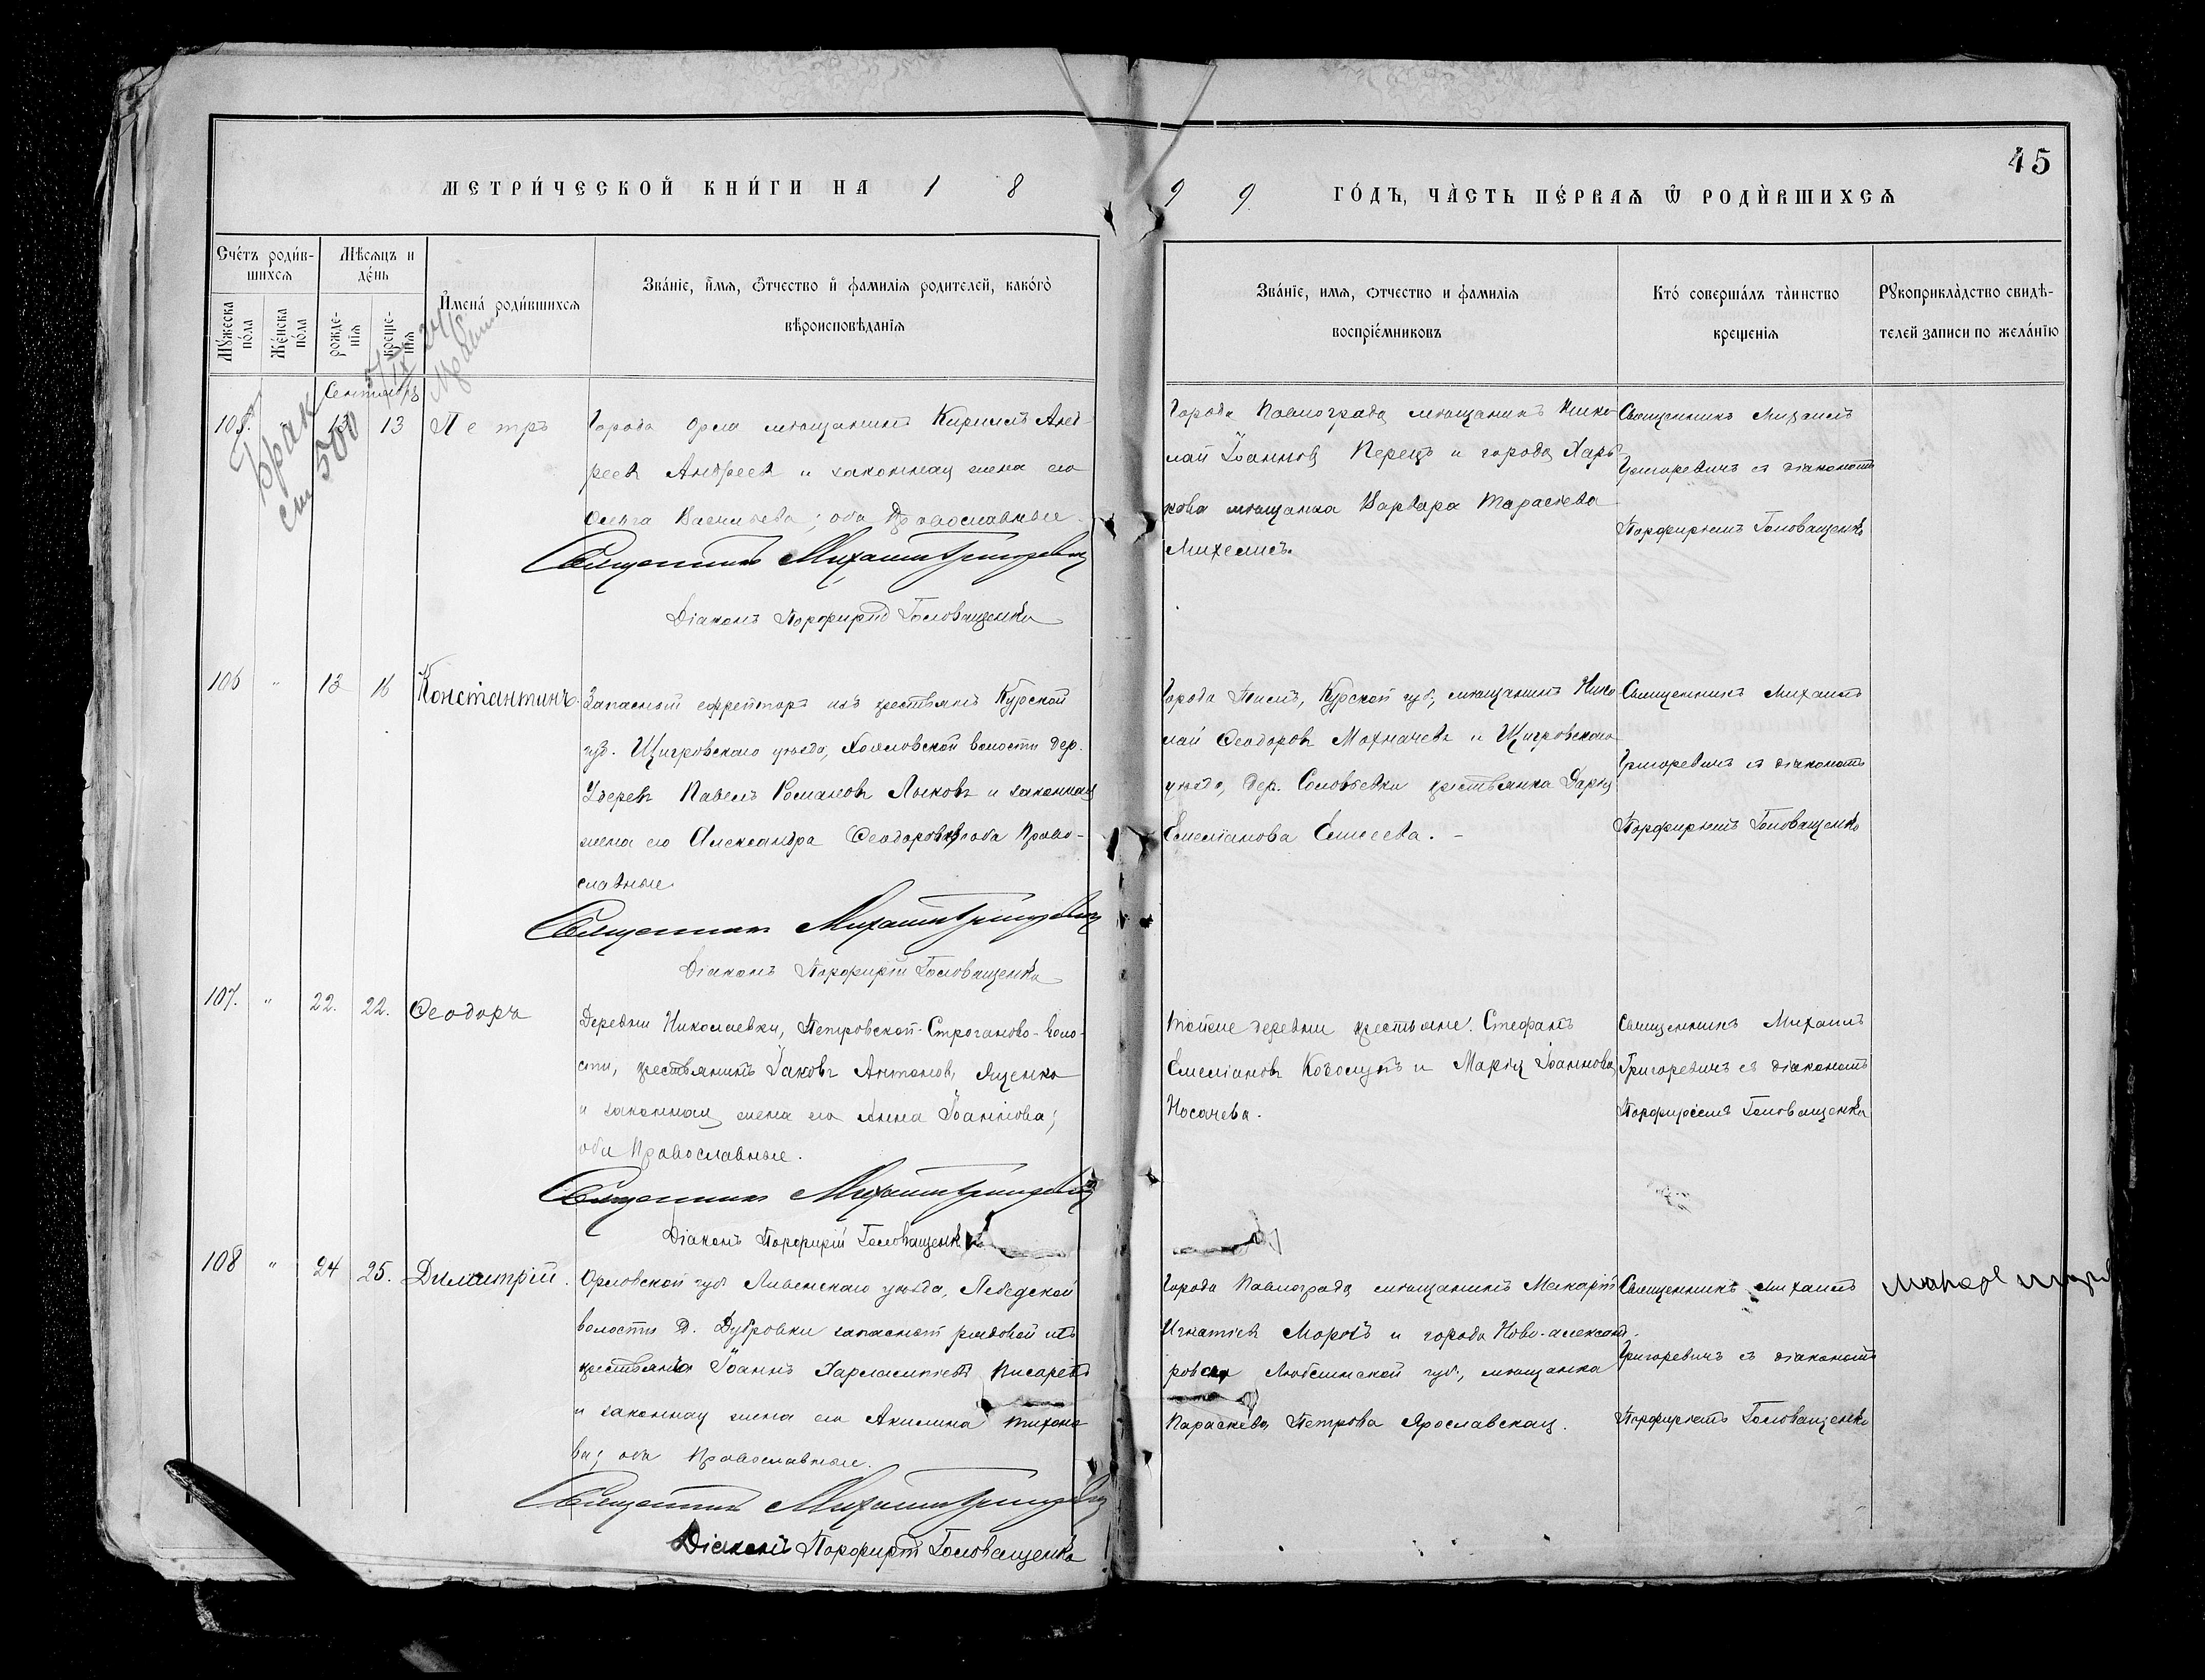 45
МЕТРИ́ЧЕСКОЙ КНИ́ГИ НА 1 8 9 9. ГО́ДЪ, ЧА̀СТЬ ПЕ́РВАЯ Ѡ҆ РОДИ́ВШИХСЯ
Сче́тъ роди́в-
шихся
Мѣ́сяцъ и
де́нь
Му́жеска по́ла
Же́нска по́ла
рожде-
нія
креще-
нія
И҆мена́ роди́вшихся
Зва́ніе, и҆́мя, ѻ҆́тчество и҆ фамилія родителей, како́гѡ
вѣроисповѣданія
Зва́ніе, имя, ѻтчество и фамилія
воспріе́мниковъ
Кто́ соверша́лъ та̀инство
крещенія
Рꙋкоприкла́дство свидѣ-
телей записи по жела́нію
Брак
см 500
Сентябрь
105. 13 13 Петръ
Города Орла мѣщанинъ Кириллъ Анд-
реевъ Андреевъ и законная жена его
Ольга Васильева; оба Православные
Священникъ Михаилъ Григоревичъ
Діаконъ Порфирій Головащенко
Города Павлограда мѣщанинъ Нико-
лай Іоанновъ Перецъ и города Харь-
кова мѣщанка Варвара Тарасіева
Михелисъ.
Священникъ Михаилъ
Григоревичъ съ діакономъ
Порфиріемъ Головащенко
106 " 13 16 Константинъ.
Запасный ефрейторъ изъ крестьянъ Курской
губ. Щигровскаго уѣзда, волости дер.
Удерева Павелъ Романовъ Лыковъ и законная
жена его Александра Ѳеодорова; оба Право-
славные
Священникъ Михаилъ Григоревичъ
Діаконъ Порфирій Головащенко
Города Курской губ., мѣщанинъ Нико-
лай Ѳеодоровъ Махначевъ и Щигровскаго
уѣзда, дер. Соловьевки крестьянка Дарія
Емеліанова Елисеева. -
Священникъ Михаилъ
Григоревичъ съ діакономъ
Порфиріемъ Головащенко
107. " 22. 22. Ѳеодоръ
Деревни Николаевки, Петровской-Строганово-воло-
сти, крестьянинъ Іаковъ Антоновъ Яценко
и законная жена его Анна Іоаннова;
оба Православные.
Священникъ Михаилъ Григоревичъ
Діаконъ Порфирій Головащенко
Тойже деревни крестьяне: Стефанъ
Емеліановъ и Марія Іоаннова
Носачева.
Священникъ Михаилъ
Григоревичъ съ діакономъ
Порфиріемъ Головащенко
108 " 24 25. Димитрій.
Орловской губ Ливенскаго уѣзда,
волости Д. Дубровки запасный рядовой изъ
крестьянъ Іоаннъ Харлампіевъ Писаревъ
и законная жена его Акилина Тихоно-
ва; оба Православные.
Священникъ Михаилъ Григоревичъ
Діаконъ Порфирій Головащенко
Города Павлограда мѣщанинъ Макарій
Игнатіевъ Морозъ и города Ново-александ-
ровска Люблинской губ., мѣщанка
Параскева Петрова Ярославская.
Священникъ Михаилъ
Григоревичъ съ діакономъ
Порфиріемъ Головащенко